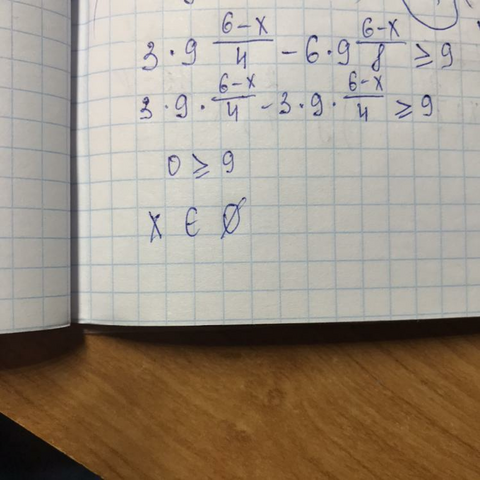 3 · 9 (6-x)/4 - 6 · 9 (6-x)/8 ≥ 9
3 · 9 · (6-x)/4 - 3 · 9 · (6-x)/4 ≥ 9
0 ≥ 9
x ∈ ∅